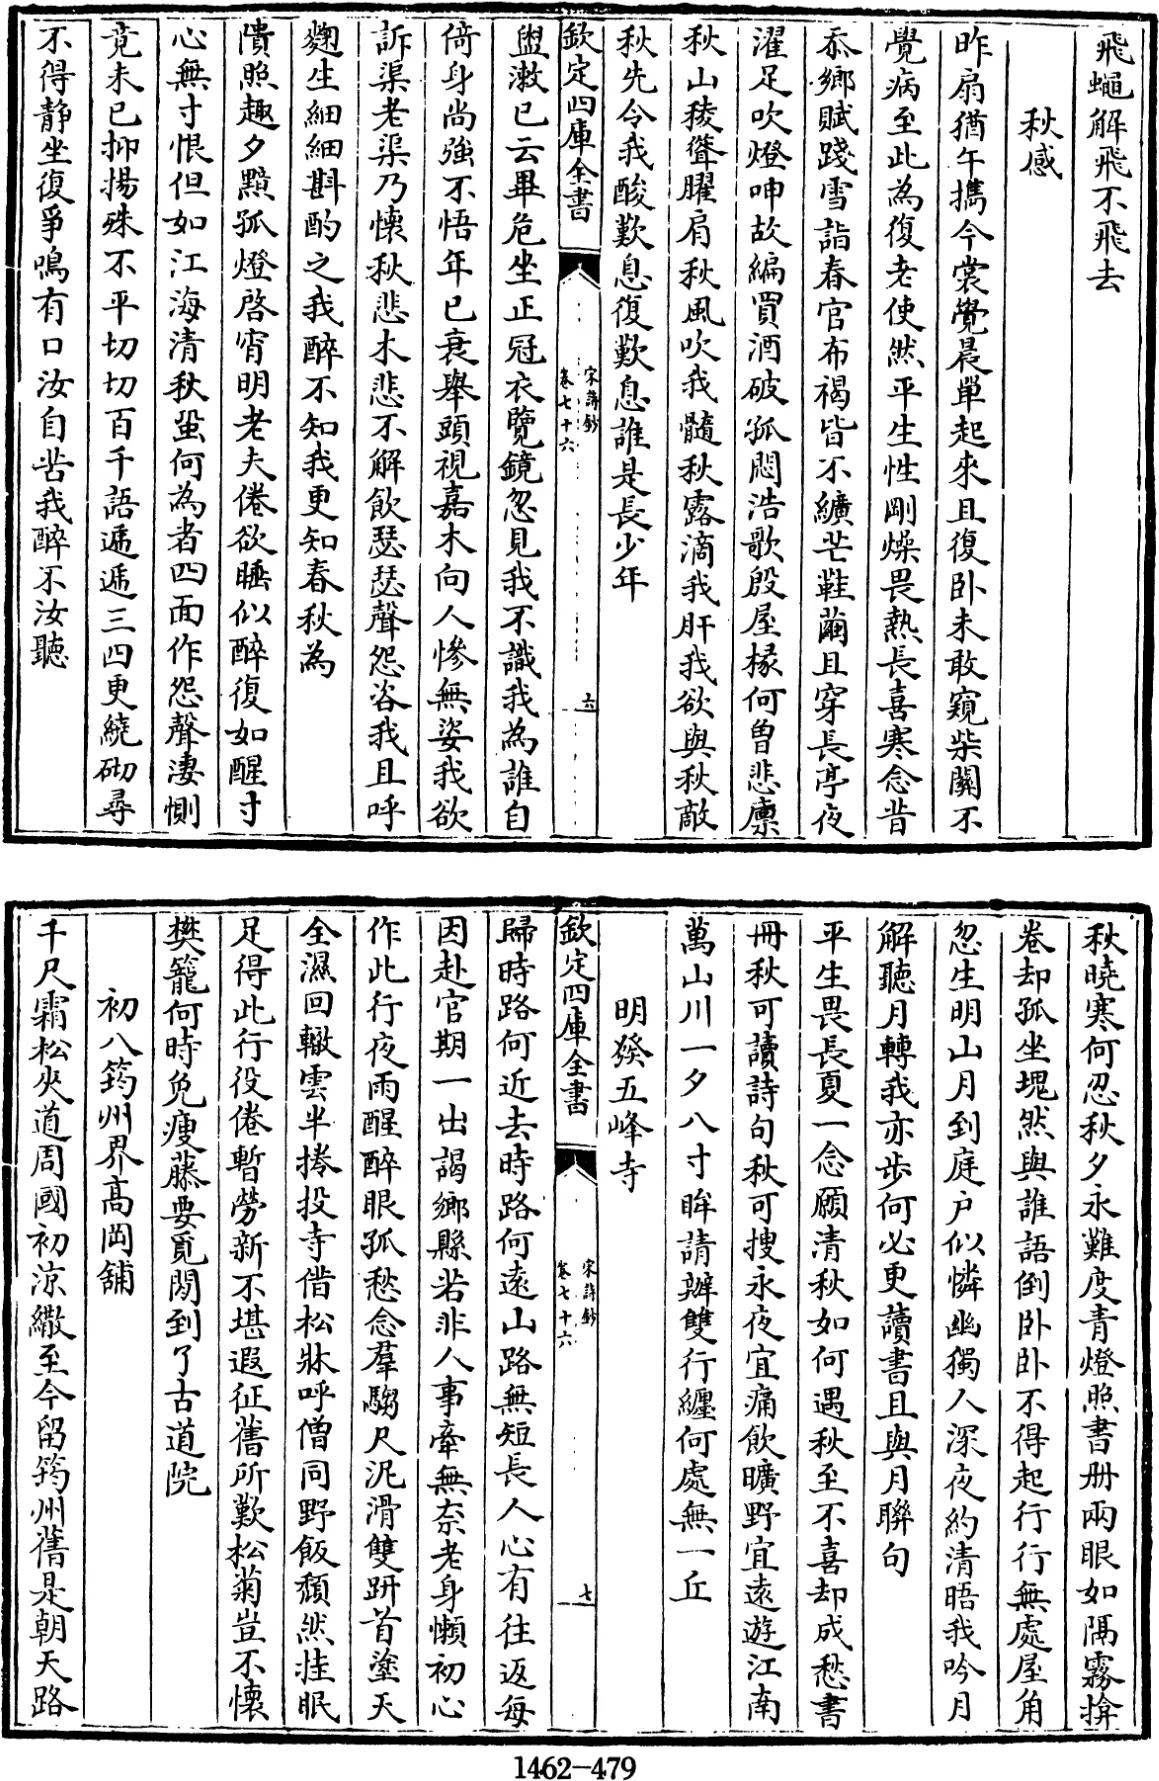 飛蠅解飛不飛去
秋感
昨扇猶午攜今裳覺晨單起來且復卧未敢窺柴關不
覺病至此為復老使然平生性剛燥畏熱長喜寒念昔
忝鄉賦踐雪詣春官布褐皆不纊芒鞋繭且穿長亭夜
濯足吹燈呻故編買酒破孤悶浩歌殷屋椽何曾悲凜
秋山稜聳臞肩秋風吹我髓秋露滴我肝我欲與秋敵
秋先令我酸歎息復歎息誰是長少年
欽定四庫全書
宋詩鈔
卷七十六
六
盥漱已云畢危坐正冠衣覽鏡忽見我不識我為誰自
倚身尚強不悟年已衰舉頭視嘉木向人慘無姿我欲
訴渠老渠乃懷秋悲木悲不解飲瑟瑟聲怨咨我且呼
麴生細細斟酌之我醉不知我更知春秋為
隤照趣夕黯孤燈啓宵明老夫倦欲睡似醉復如醒寸
心無寸恨但如江海清秋蛩何為者四面作怨聲淒惻
竟未已抑揚殊不平切切百千語遞遞三四更繞砌尋
不得靜坐復爭鳴有口汝自苦我醉不汝聽
秋曉寒何忍秋夕永難度青燈照書册兩眼如隔霧揜
卷却孤坐塊然與誰語倒卧卧不得起行行無處屋角
忽生明山月到庭户似憐幽獨人深夜約清晤我吟月
解聽月轉我亦步何必更讀書且與月聯句
平生畏長夏一念願清秋如何遇秋至不喜却成愁書
册秋可讀詩句秋可搜永夜宜痛飲曠野宜遠遊江南
萬山川一夕八寸眸請辦雙行纏何處無一丘
明發五峰寺
欽定四庫全書
宋詩鈔
卷七十六
七
歸時路何近去時路何遠山路無短長人心有往返每
因赴官期一出謁鄉縣若非人事牽無奈老身懶初心
作此行夜雨醒醉眼孤愁念羣騶尺泥滑雙趼首塗天
全濕回轍雲半捲投寺借松牀呼僧同野飯頹然拄眠
足得此行役倦暫勞新不堪遐征舊所歎松菊豈不懷
樊籠何時免瘦藤要覓閒到了古道院
初八筠州界高岡舖
千尺霜松夾道周國初涼繖至今留筠州舊是朝天路
1462-479